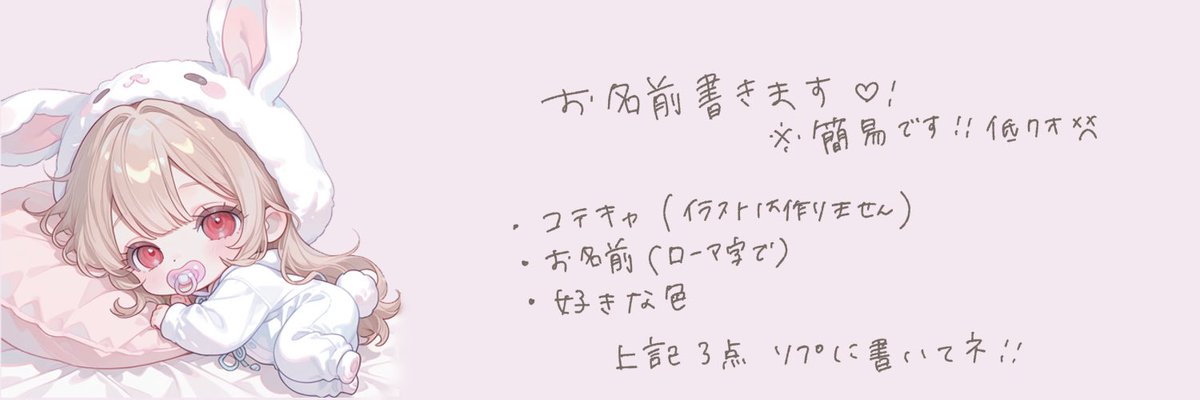 お名前書きます♡!
※簡易です!!低クオ××
・コテキャ(イラストは作りません)
・お名前(ローマ字で)
・好きな色
上記3点 リプに書いてネ!!